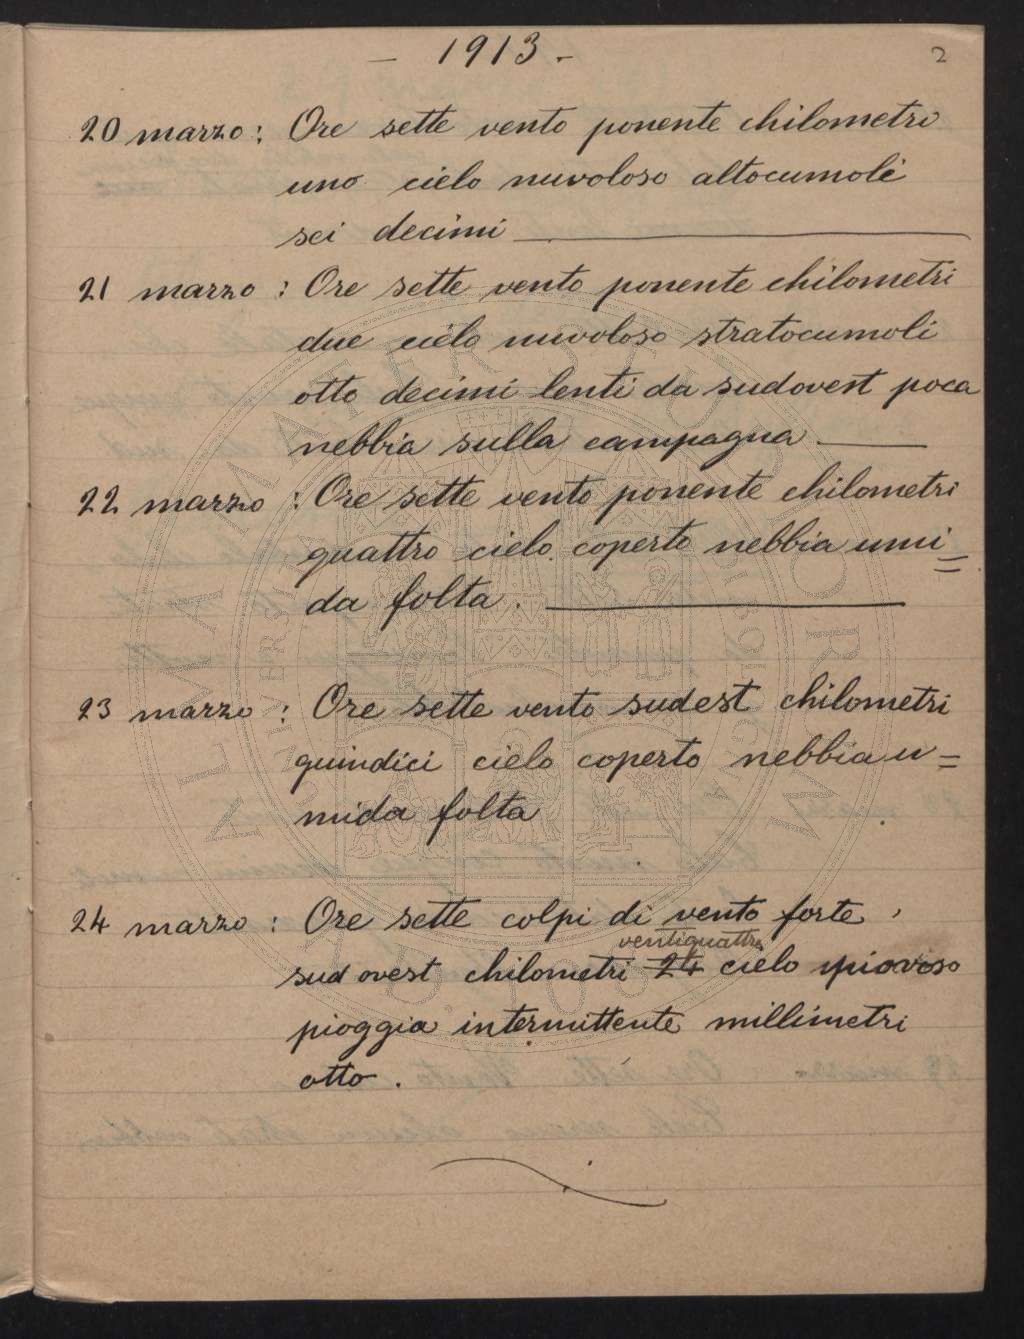 - 1913 -
2
20 marzo: Ore sette vento ponente chilometri
uno cielo nuvoloso altocumoli
sei decimi
21 marzo: Ore sette vento ponente chilometri
due cielo nuvoloso stratocumoli
otto decimi lenti da sudovest poca
nebbia sulla campagna
22 marzo: Ore sette vento ponente chilometri
quattro cielo coperto nebbia umi=
da folta.
23 marzo: Ore sette vento sudest chilometri
quindici cielo coperto nebbia u=
mida folta
24 marzo: Ore sette colpi di vento forte,
ventiquattro
sud ovest chilometri 24 cielo piovoso
pioggia intermittente millimetri
otto.
ALMA MATER STUDIORUM